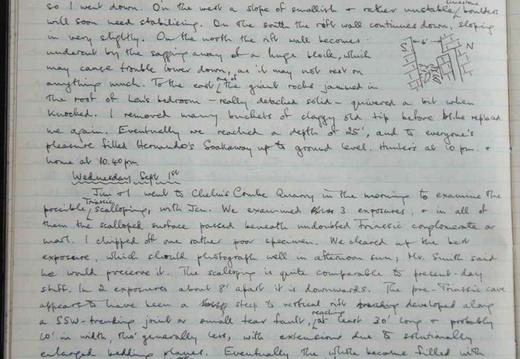 so I went down. On the west a slope of smallish & rather unstable boulders
will soon need stabilising. On the south the rift wall continues down, sloping
in very slightly. On the north the rift wall becomes
undercut by the sapping away of a huge block, which
may cause trouble lower down, as it may not rest on
anything much. To the east, the giant rocks jammed in
the roof of Ian's bedroom - really detached solid - quivered a bit when
knocked. I removed many buckets of clayey old tip before Mike replaced
me again. Eventually we reached a depth of 25', and to everyone's
pleasure filled Hernando's Soakaway up to ground level. Hunters at 10 pm. &
home at 10.40 pm
S 6' N
Wednesday, Sept 1st
Jim & I went to Chelms Combe Quarry in the morning to examine the
possible Triassic scalloping, with Jen. We examined 3 exposures, & in all of
them the scalloped surface passed beneath undoubted Triassic conglomerate or
marl. I chipped off one rather poor specimen. We cleared up the best
exposure, which should photograph well in afternoon sun; Mr. Smith said
he would preserve it. The scalloping is quite comparable to present-day
stuff. In 2 exposures about 8' apart it is downwards. The pre-Triassic cave
appears to have been a steep to vertical rift developed along
a SSW-trending joint or small tear fault, reaching at least 30' long & probably
60' in width, tho' generally less, with extensions due to solutionally
enlarged bedding planes. Eventually the whole became filled with